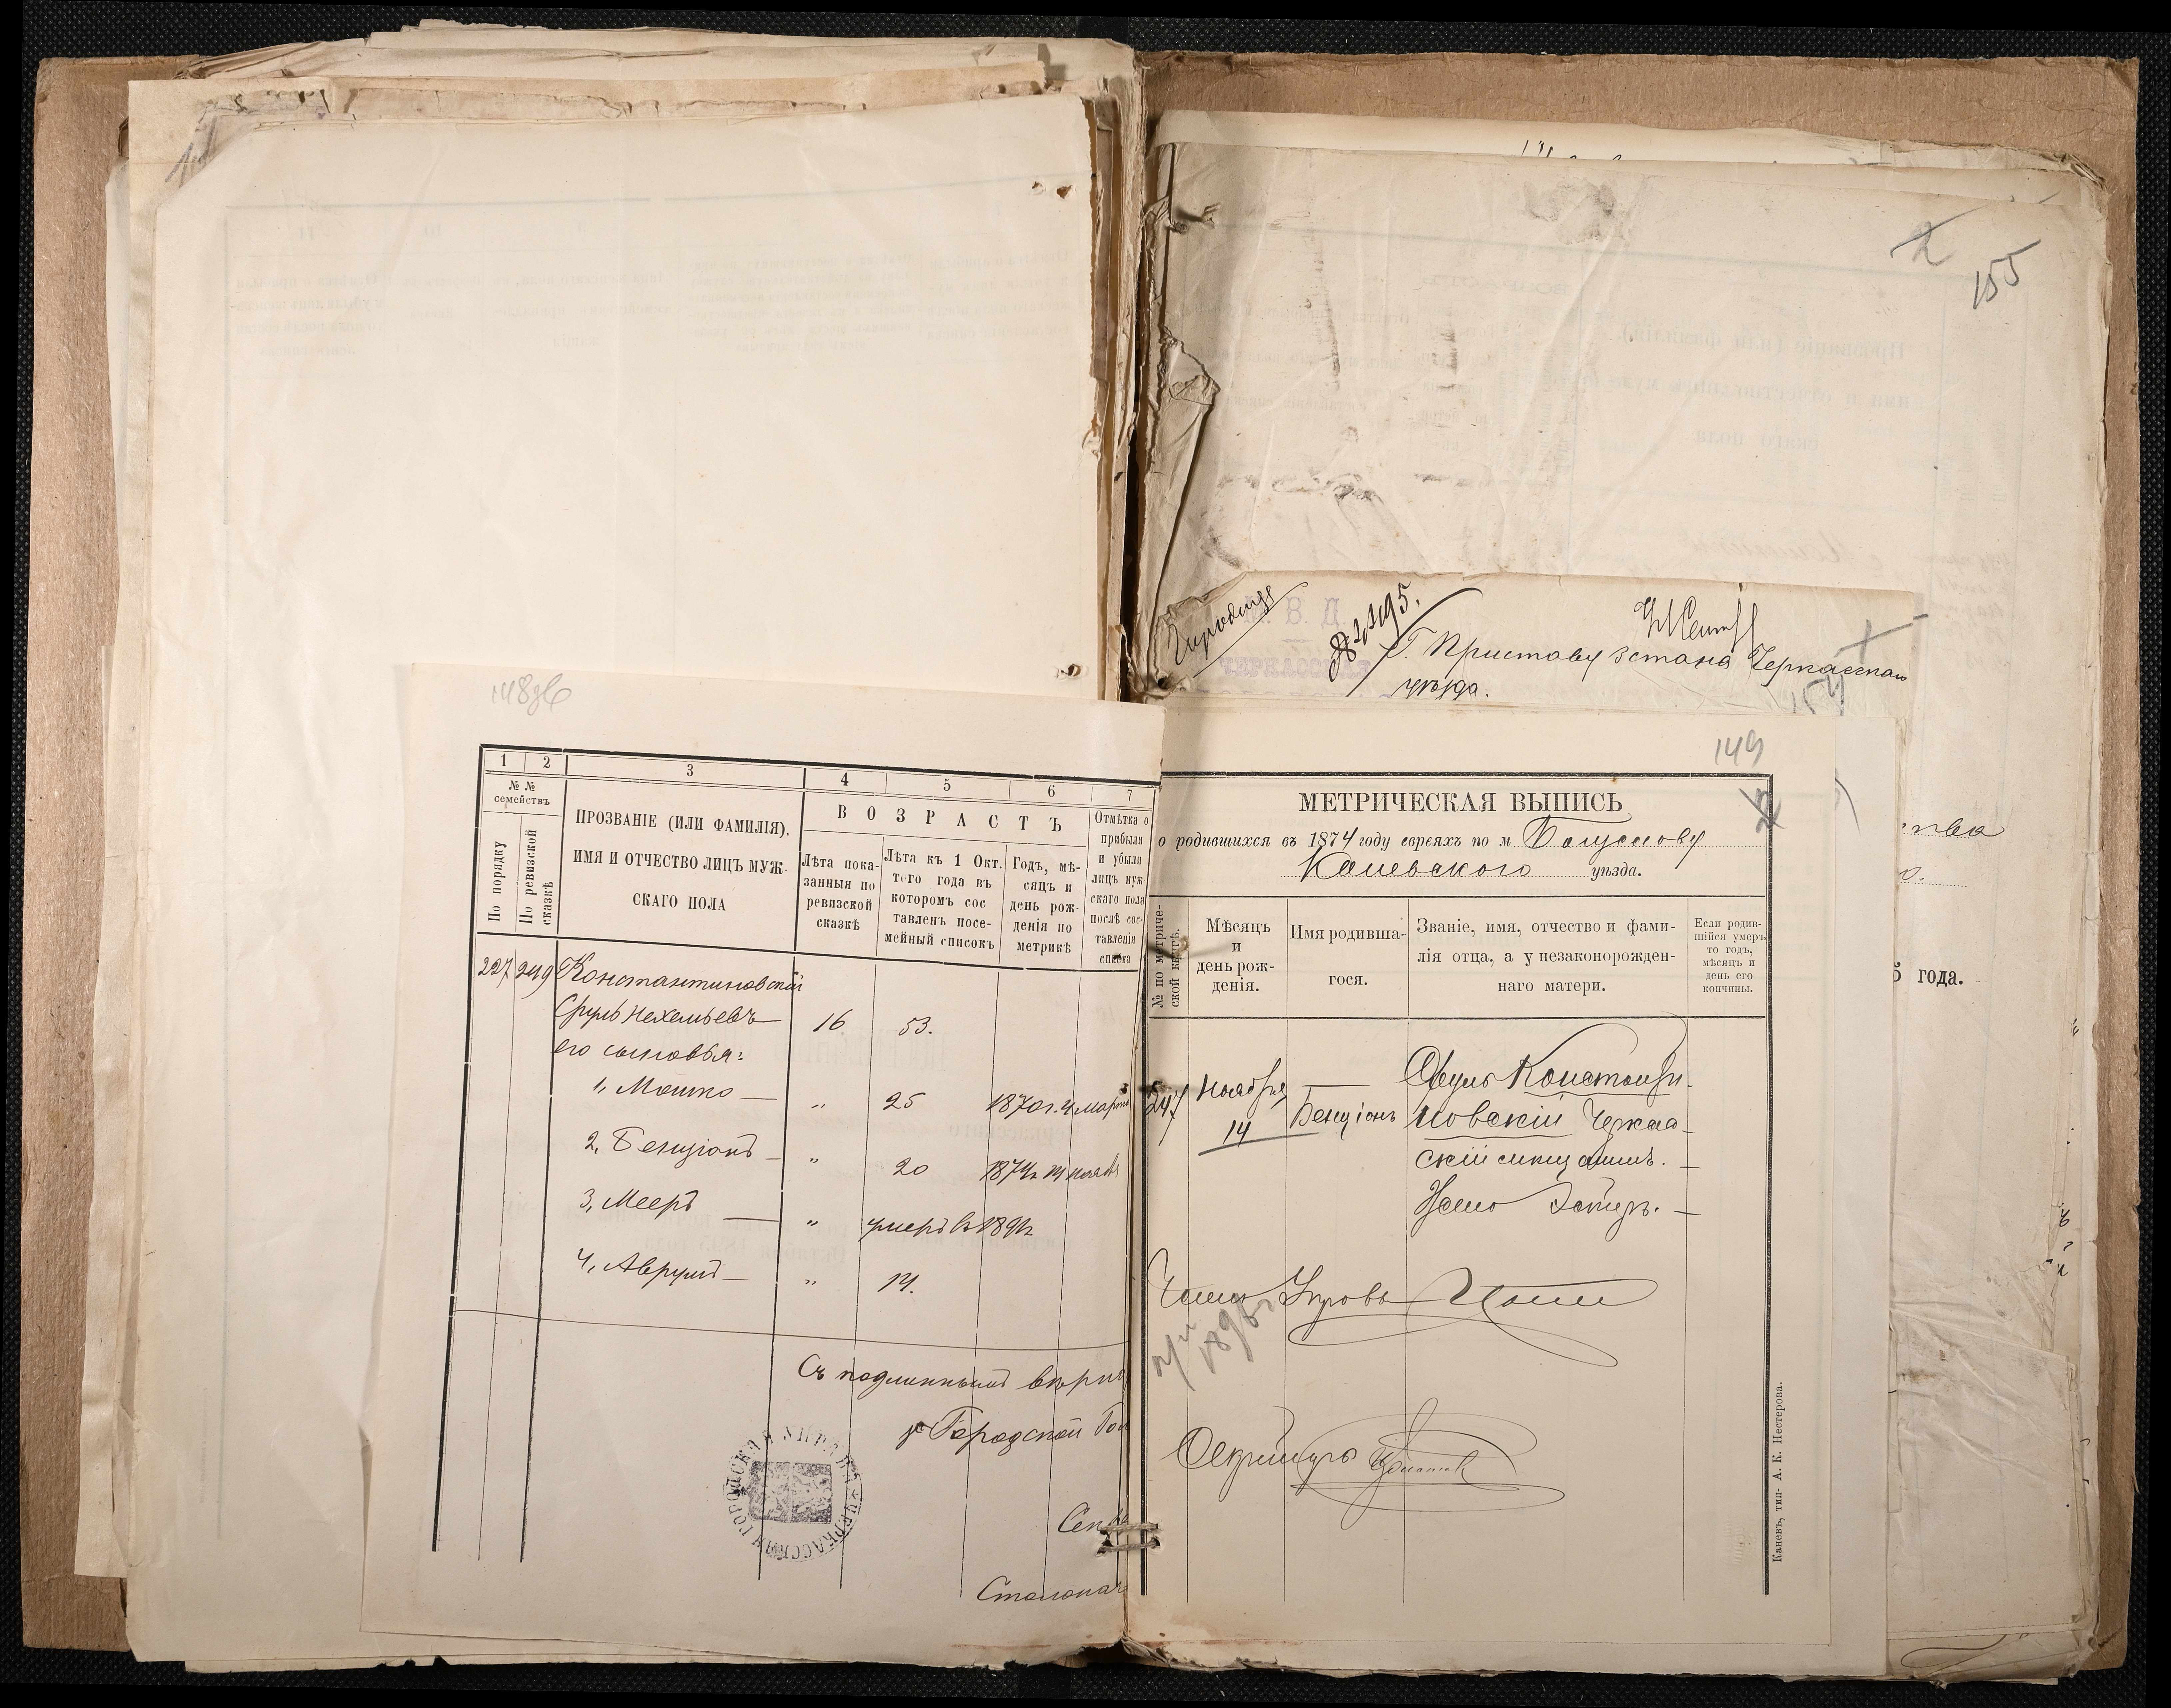 148об
1 2 3 4 5 6 7
№ №
семействъ
По порядку
По ревизской
сказкѣ
ПРОЗВАНІЕ (ИЛИ ФАМИЛІЯ),
ИМЯ И ОТЧЕСТВО ЛИЦЪ МУЖ-
СКАГО ПОЛА
ВОЗРАСТЪ
Лѣта пока-
занныя по
ревизской
сказкѣ
Лѣта къ 1 Окт.
того года въ
которомъ сос
тавленъ посе-
мейный списокъ
Годъ, мѣ-
сяцъ и
день рож-
денія по
метрикѣ
Отмѣтка о
прибыли
и убыли
лицъ муж
скаго пола
послѣ сос-
тавленія
списка
227 249 Константиновскій
Сруль Нехемьевъ 16 53.
его сыновья:
1, Мошко — „ 25 1870 г. 4 марта
2, Бенціонъ — „ 20 1874 г. 14 нояб
3, Мееръ — „ умеръ въ 189
4, Аврумъ — „ 14.
Съ подлиннымъ вѣрно
Городской Гол
Секр
Столонач
155
№ 2495.
Г. Приставу 3 стана Черкасскаго
уѣзда.
В. Д.
ЧЕРКАССКАЯ
149
МЕТРИЧЕСКАЯ ВЫПИСЬ
о родившихся въ 1874 году евреяхъ по м Богуславу
Каневского уѣзда.
№ по метриче-
ской книгѣ.
Мѣсяцъ
и
день рож-
денія.
Имя родивша-
гося.
Званіе, имя, отчество и фами-
лія отца, а у незаконорожден-
наго матери.
Если родив-
шійся умеръ
то годъ,
мѣсяцъ и
день его
кончины.
247 Ноября — Сруль Константи-
14 Бенціонъ новскій Черкас-
скій мѣщанинъ. —
Эстеръ. —
Членъ Управы
Секретарь
Каневъ, тип- А. К. Нестерова.
5 года.